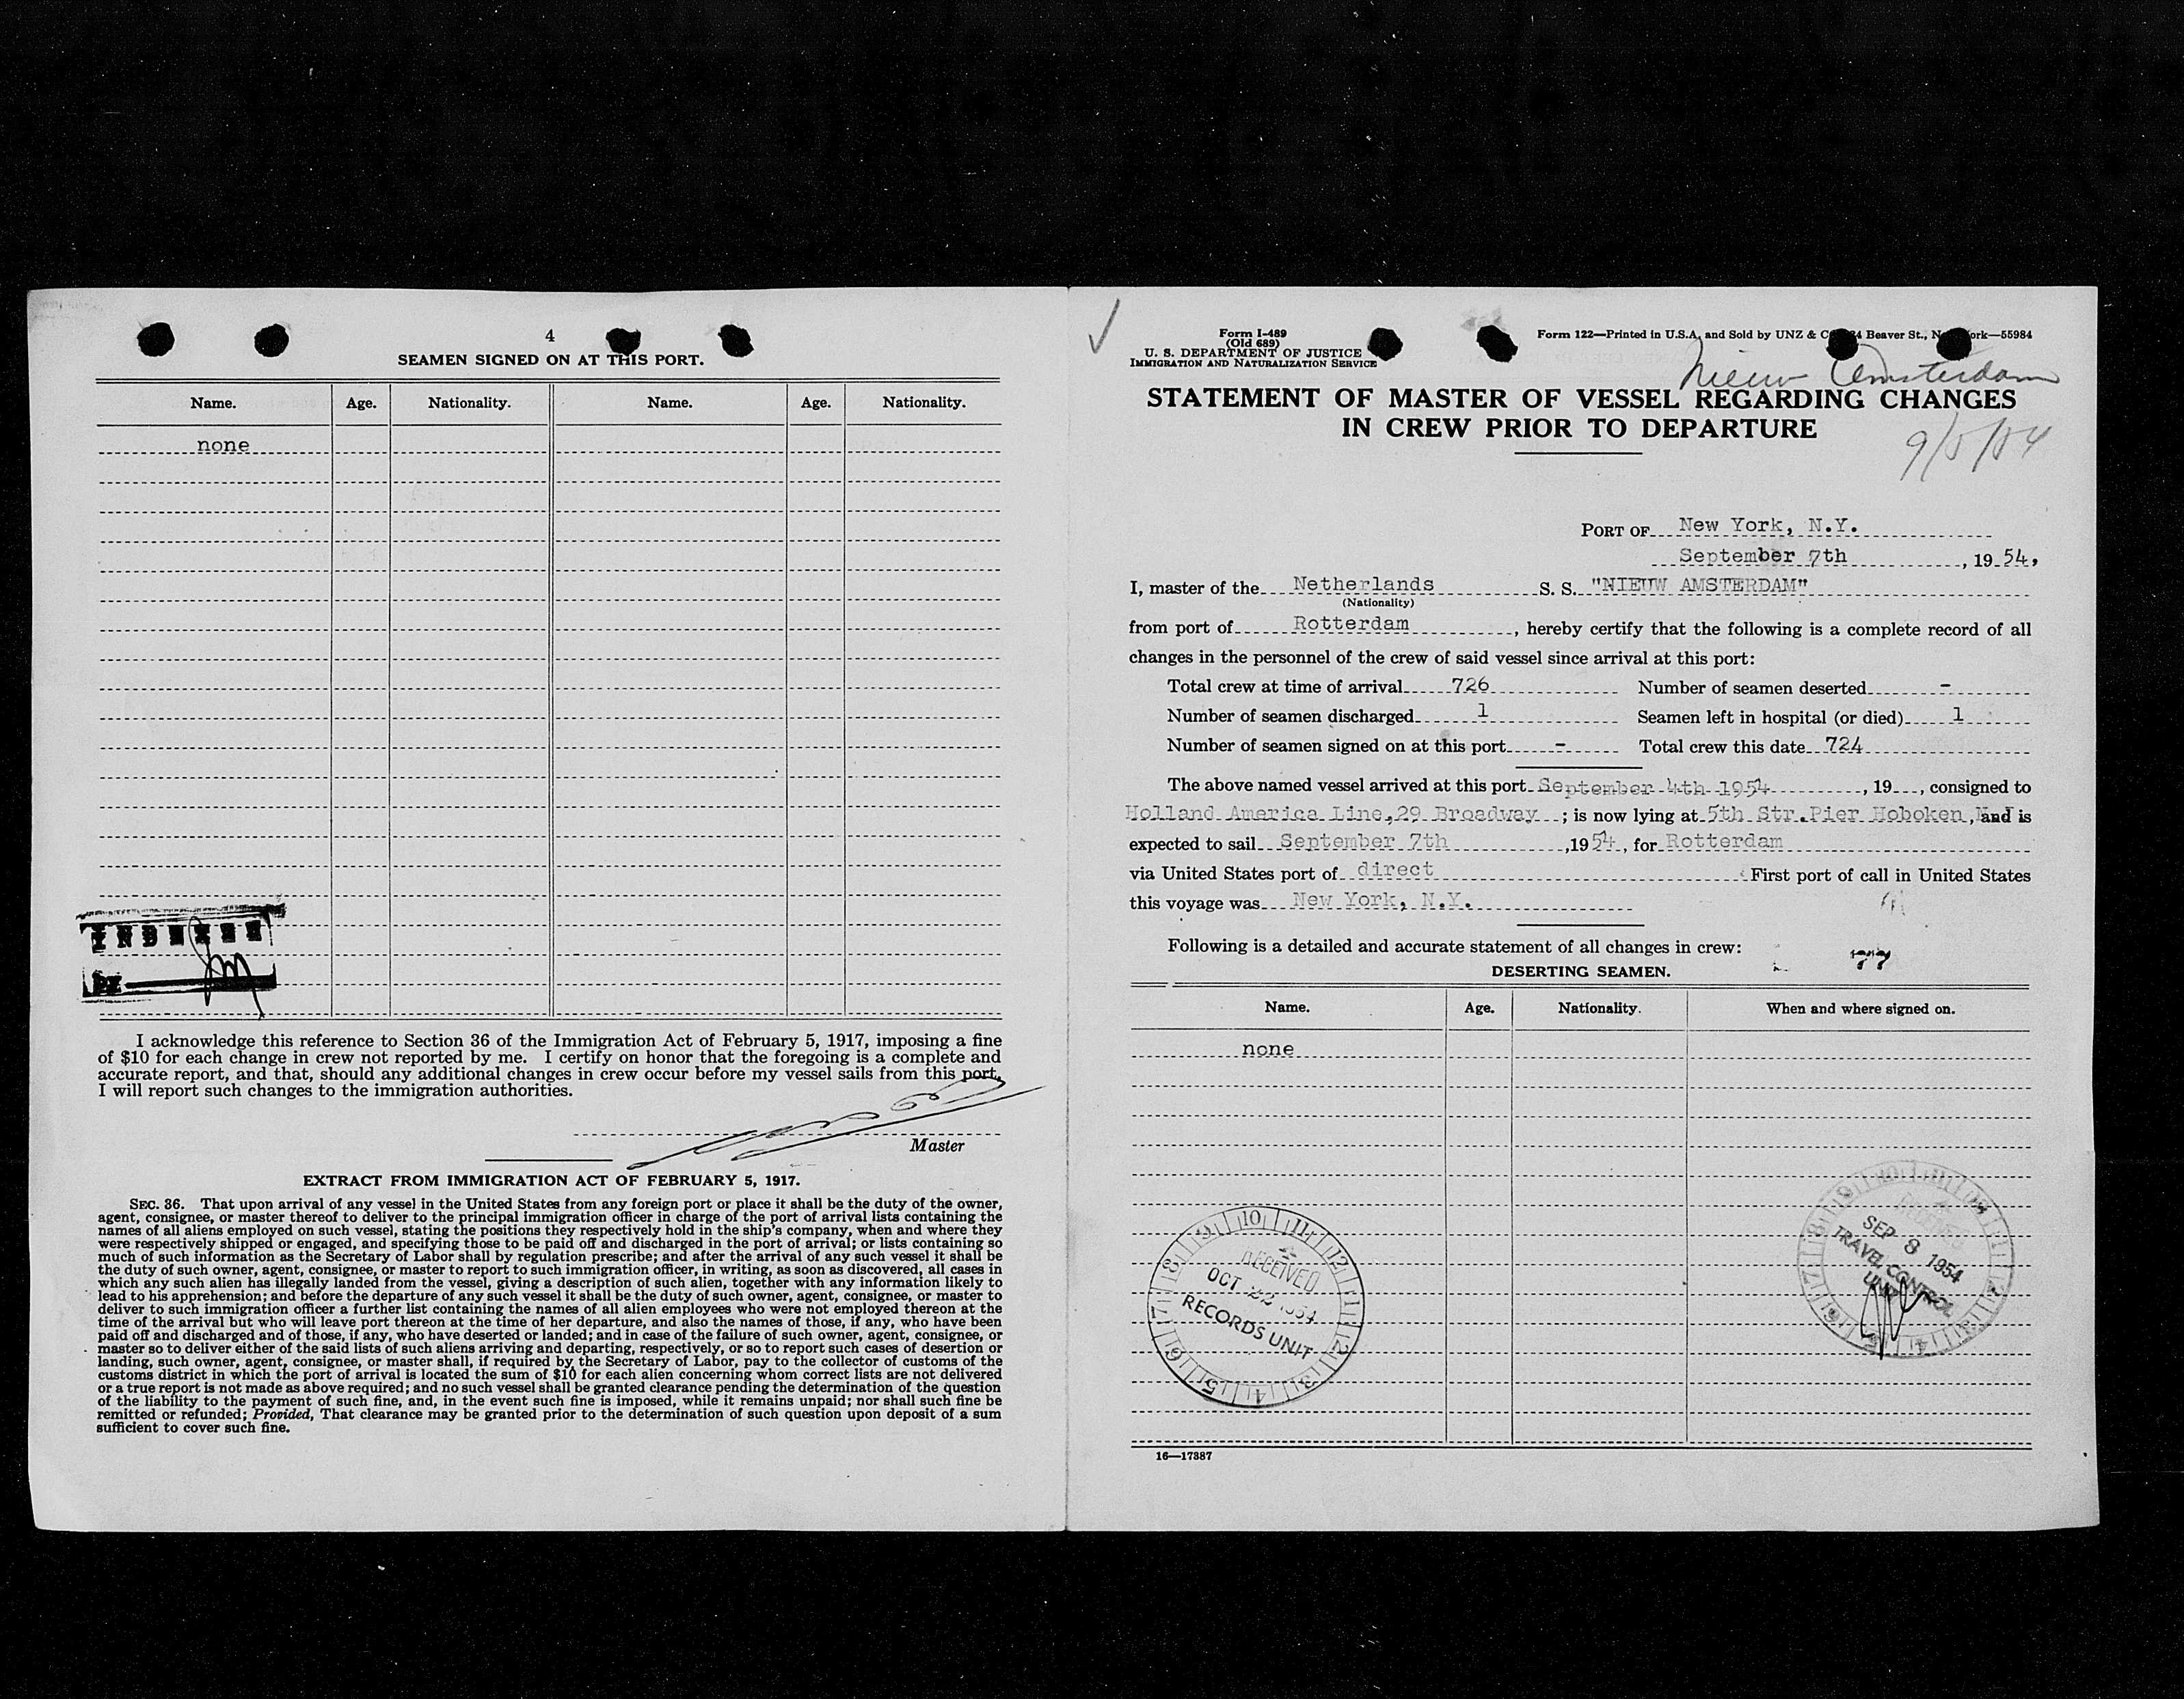 4
SEAMEN SIGNED ON AT THIS PORT.
Name. Age. Nationality. Name. Age. Nationality.
none
INDEXED
BY
I acknowledge this reference to Section 36 of the Immigration Act of February 5, 1917, imposing a fine
of $10 for each change in crew not reported by me. I certify on honor that the foregoing is a complete and
accurate report, and that, should any additional changes in crew occur before my vessel sails from this port,
I will report such changes to the immigration authorities.
Master
EXTRACT FROM IMMIGRATION ACT OF FEBRUARY 5, 1917.
SEC. 36. That upon arrival of any vessel in the United States from any foreign port or place it shall be the duty of the owner,
agent, consignee, or master thereof to deliver to the principal immigration officer in charge of the port of arrival lists containing the
names of all aliens employed on such vessel, stating the positions they respectively hold in the ship's company, when and where they
were respectively shipped or engaged, and specifying those to be paid off and discharged in the port of arrival; or lists containing so
much of such information as the Secretary of Labor shall by regulation prescribe; and after the arrival of any such vessel it shall be
the duty of such owner, agent, consignee, or master to report to such immigration officer, in writing, as soon as discovered, all cases in
which any such alien has illegally landed from the vessel, giving a description of such alien, together with any information likely to
lead to his apprehension; and before the departure of any such vessel it shall be the duty of such owner, agent, consignee, or master to
deliver to such immigration officer a further list containing the names of all alien employees who were not employed thereon at the
time of the arrival but who will leave port thereon at the time of her departure, and also the names of those, if any, who have been
paid off and discharged and of those, if any, who have deserted or landed; and in case of the failure of such owner, agent, consignee, or
master so to deliver either of the said lists of such aliens arriving and departing, respectively, or so to report such cases of desertion or
landing, such owner, agent, consignee, or master shall, if required by the Secretary of Labor, pay to the collector of customs of the
customs district in which the port of arrival is located the sum of $10 for each alien concerning whom correct lists are not delivered
or a true report is not made as above required; and no such vessel shall be granted clearance pending the determination of the question
of the liability to the payment of such fine, and, in the event such fine is imposed, while it remains unpaid; nor shall such fine be
remitted or refunded; Provided, That clearance may be granted prior to the determination of such question upon deposit of a sum
sufficient to cover such fine.
Form I-489
(Old 689)
U. S. DEPARTMENT OF JUSTICE
IMMIGRATION AND NATURALIZATION SERVICE
Form 122—Printed in U.S.A. and Sold by UNZ & Beaver St., 55984
Nieuw Amsterdam
STATEMENT OF MASTER OF VESSEL REGARDING CHANGES
IN CREW PRIOR TO DEPARTURE
PORT OF New York, N.Y.
September 7th, 19 54,
I, master of the Netherlands S. S. "NIEUW AMSTERDAM"
(Nationality)
from port of Rotterdam, hereby certify that the following is a complete record of all
changes in the personnel of the crew of said vessel since arrival at this port:
Total crew at time of arrival 726 Number of seamen deserted -
Number of seamen discharged 1 Seamen left in hospital (or died) 1
Number of seamen signed on at this port - Total crew this date 724
The above named vessel arrived at this port September 4th 1954, 19, consigned to
Holland America Line, 29 Broadway; is now lying at 5th Str. Pier Hoboken, and is
expected to sail September 7th, 1954, for Rotterdam
via United States port of direct First port of call in United States
this voyage was New York, N.Y.
Following is a detailed and accurate statement of all changes in crew:
77
DESERTING SEAMEN.
Name. Age. Nationality. When and where signed on.
none
SEP 8 1954
TRAVEL CONTROL
UNIT
RECEIVED
OCT 22 1954
RECORDS UNIT
16—17387